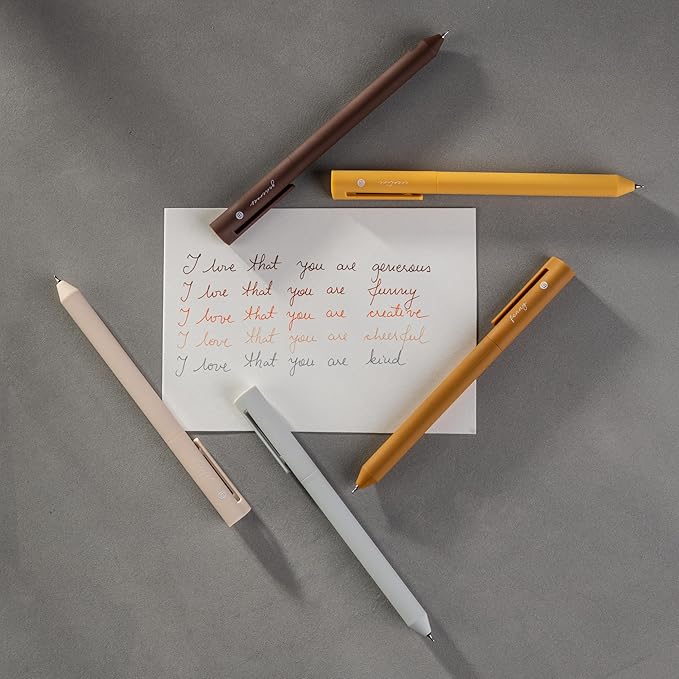 generous
creative
I love that you are generous
I love that you are funny
I love that you are creative
I love that you are cheerful
I love that you are kind
funny